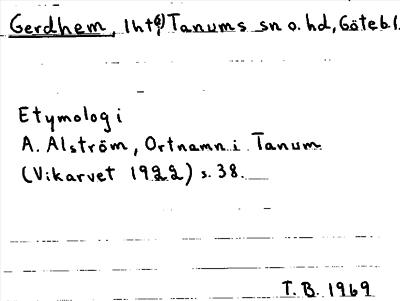 Gerdhem, Tanums sn o. hd, Göteb.l.
Etymologi
A. Alström, Ortnamn i Tanum
(Vikarvet 1922) s. 38.
T.B. 1969